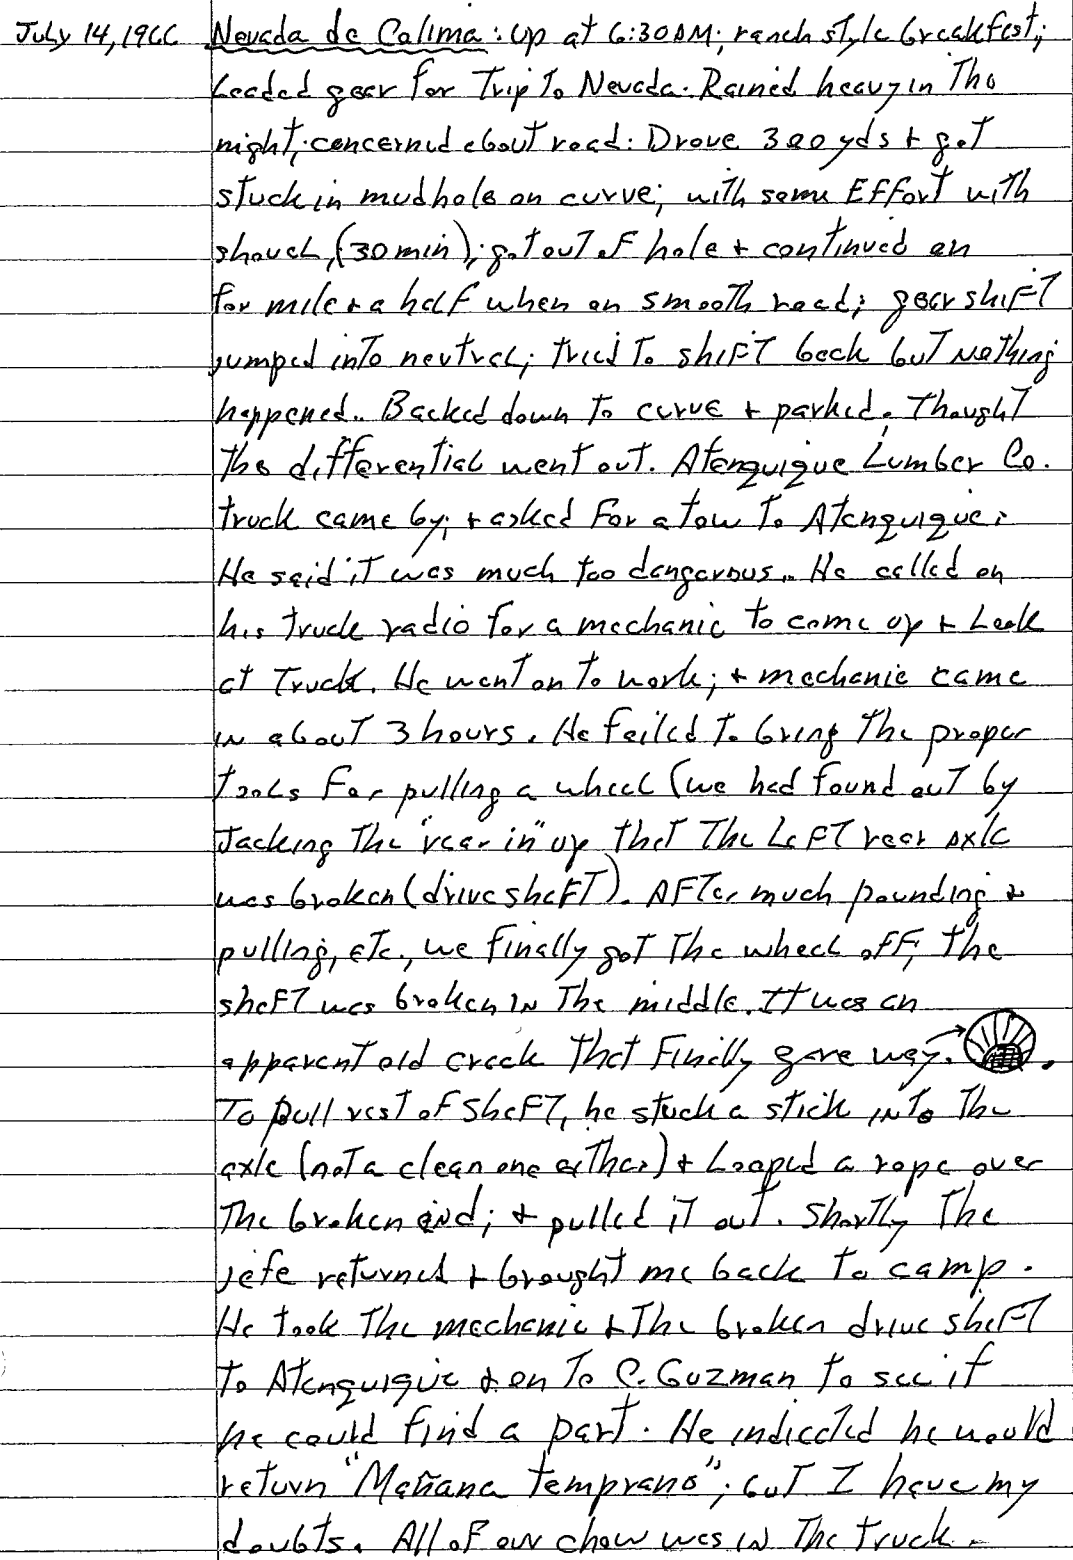 July 14, 1966 Nevada de Colima: Up at 6:30AM; ranch style breakfast;
Loaded gear for Trip To Nevada. Rained heavy in The
night, concerned about road: Drove 300 yds + got
stuck in mudhole on curve; with some Effort with
shovel, (30 min); got out of hole + continued on
for mile + a half when on smooth road; gear shift
jumped into neutral; tried To shift back but nothing
happened.. Backed down To curve + parked. Thought
The differential went out. Atenquique Lumber Co.
truck came by; + asked For a tow To Atenquique.
He said it was much too dangerous.. He called on
his truck radio for a mechanic to come up + Look
at Truck. He went on To work; + mechanic came
in about 3 hours. He failed To bring The proper
tools For pulling a wheel (we had found out by
Jacking The "rear in" up that The Left rear axle
was broken (drive shaft). After much pounding +
pulling, etc., we finally got The wheel off; The
shaft was broken in The middle. It was an
apparent old crack That Finally gave way. .
To pull rest of shaft, he stuck a stick into The
axle (not a clean one either) + Looped a rope over
The broken end; + pulled it out. Shortly The
jefe returned + brought me back to camp.
He took The mechanic + The broken drive shaft
to Atenquique + on To C. Guzman to see if
he could find a part. He indicated he would
return "Mañana temprano"; but I have my
doubts. All of our chow was in The truck.